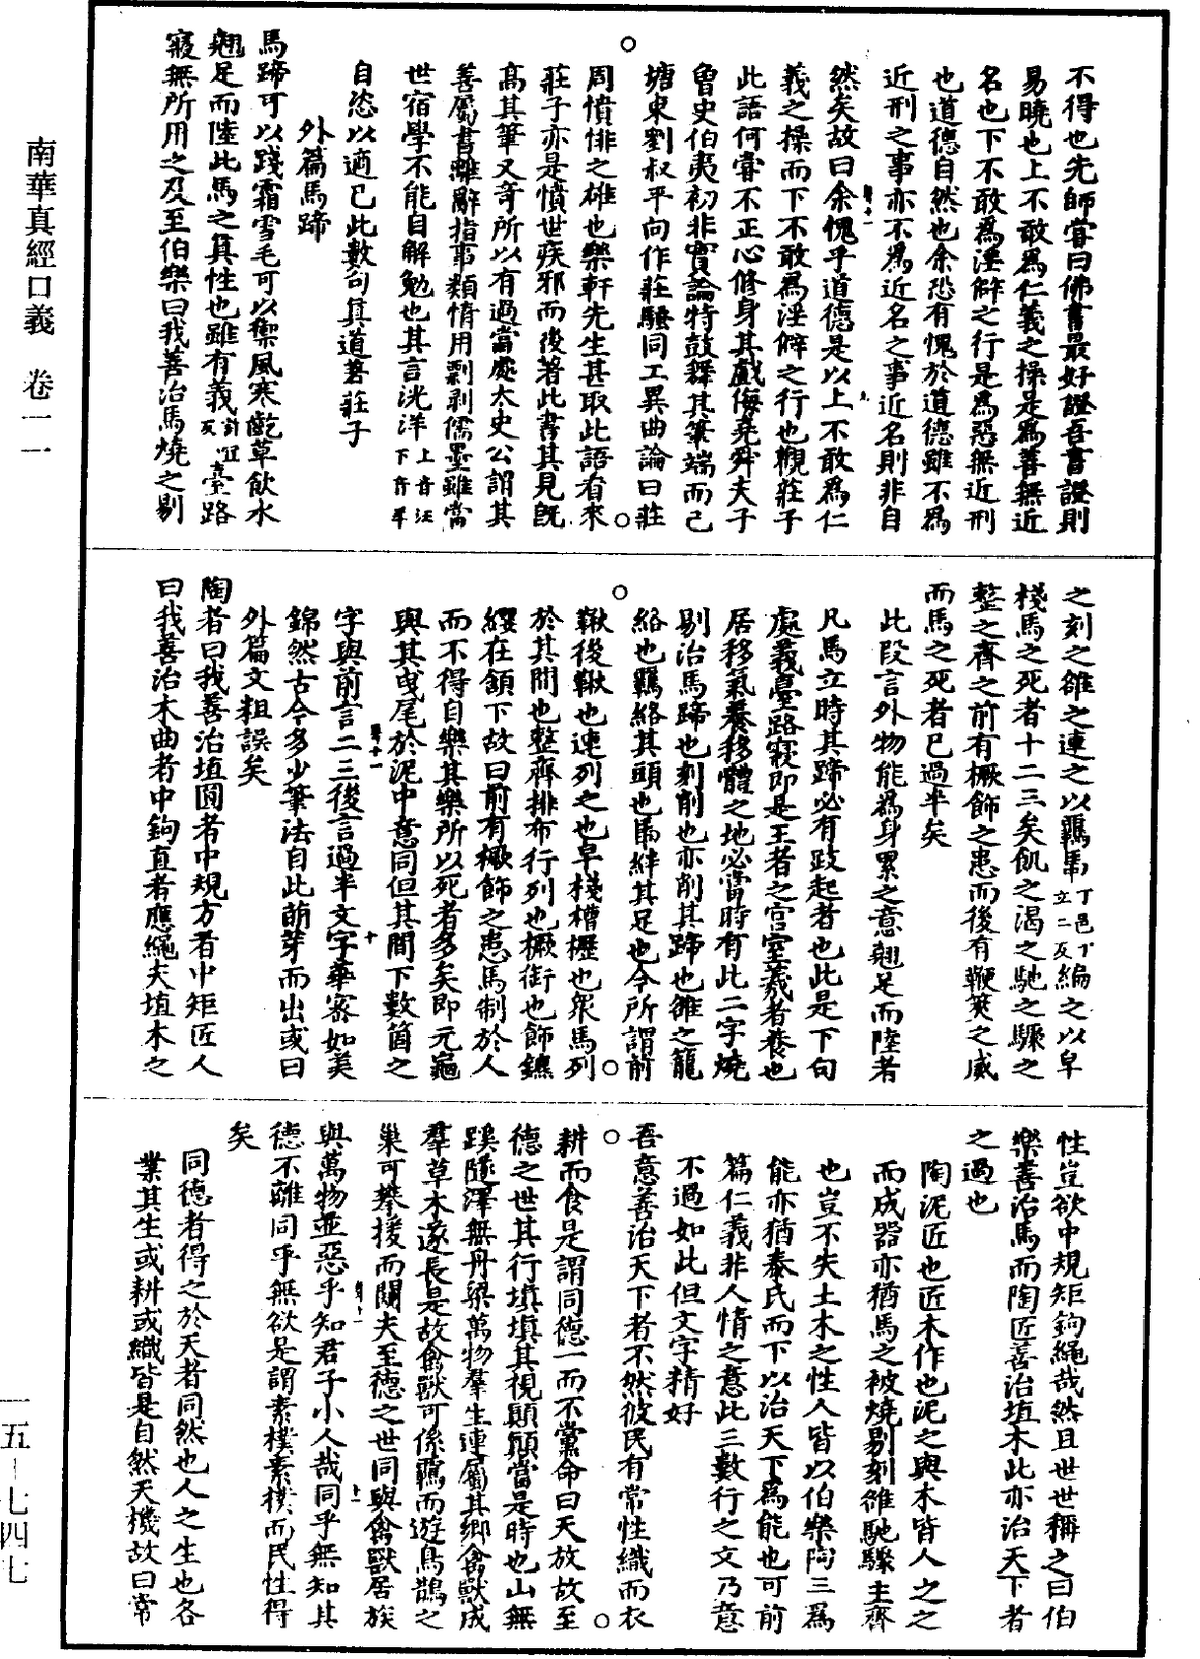 不得也先師嘗曰佛書最好證吾書證則
易曉也上不敢為仁義之操是為善無近
名也下不敢為淫僻之行是為惡無近刑
也道德自然也余恐有愧於道德雖不為
近刑之事亦不為近名之事近名則非自
然矣故曰余愧乎道德是以上不敢為仁
義之操而下不敢為淫僻之行也觀莊子
此語何嘗不正心修身其戲侮堯舜夫子
曾史伯夷初非實論特鼓舞其筆端而已
塘東劉叔平向作莊騷同工異曲論曰莊
周憤悱之雄也樂軒先生甚取此語看來
莊子亦是憤世疾邪而後著此書其見既
高其筆又奇所以有過當處太史公謂其
善屬書離辭指事類情用剽剝儒墨雖當
世宿學不能自解勉也其言洸洋上音汪下音羊
自恣以適己此數句真道著莊子
外篇馬蹄
馬蹄可以踐霜雪毛可以禦風寒齕草飲水
翹足而陸此馬之真性也雖有義臺路
寢無所用之及至伯樂曰我善治馬燒之剔
之刻之雒之連之以羈馽丁邑丁立二反編之以皁
棧馬之死者十二三矣飢之渴之馳之驟之
整之齊之前有橛飾之患而後有鞭筴之威
而馬之死者已過半矣
此段言外物能為身累之意翹足而陸者
凡馬立時其蹄必有跂起者也此是下句
處義臺路寢即是王者之宮室義者養也
居移氣養移體之地必當時有此二字燒
剔治馬蹄也刻削也亦削其蹄也雒之籠
絡也羈絡其頭也馽絆其足也今所謂前
鞦後鞦也連列之也皁棧槽櫪也眾馬列
於其間也整齊排布行列也橛銜也飾鑣
纓在額下故曰前有橛飾之患馬制於人
而不得自樂其樂所以死者多矣即元龜
與其曳尾於泥中意同但其間下數箇之
字與前言二三後言過半文字華密如美
錦然古今多少筆法自此萌芽而出或曰
外篇文粗誤矣
陶者曰我善治埴圓者中規方者中矩匠人
曰我善治木曲者中鉤直者應繩夫埴木之
性豈欲中規矩鉤繩哉然且世世稱之曰伯
樂善治馬而陶匠善治埴木此亦治天下者
之過也
陶泥匠也匠木作也泥之與木皆人之之
而成器亦猶馬之被燒剔刻雒馳驟主齊
也豈不失土木之性人皆以伯樂陶三為
能亦猶泰氏而下以治天下為能也可前
篇仁義非人情之意此三數行之文乃意
不過如此但文字精好
吾意善治天下者不然彼民有常性織而衣
耕而食是謂同德一而不黨命曰天放故至
德之世其行填填其視顛顛當是時也山無
蹊隧澤無舟梁萬物羣生連屬其鄉禽獸成
羣草木遂長是故禽獸可係羈而遊鳥鵲之
巢可攀援而闚夫至德之世同與禽獸居族
與萬物並惡乎知君子小人哉同乎無知其
德不離同乎無欲是謂素樸素樸而民性得
矣
同德者得之於天者同然也人之生也各
業其生或耕或織皆是自然天機故曰常
南華真經口義 卷一一
一五－七四七